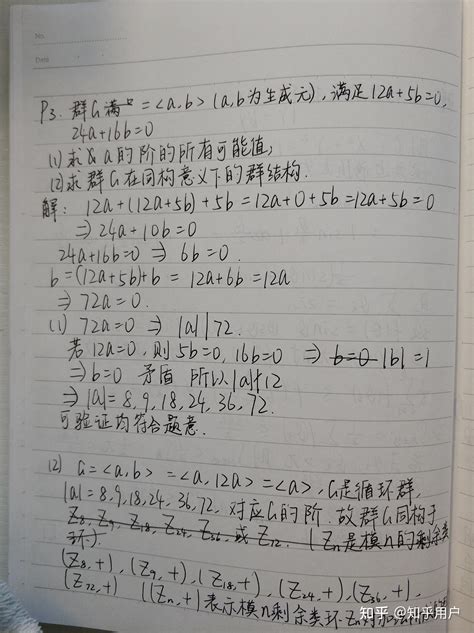 No.
Date
P3. 群G满 = <a,b> (a,b为生成元), 满足12a+5b=0,
24a+16b=0
(1) 求 a的阶的所有可能值,
(2) 求群G在同构意义下的群结构.
解: 12a+(12a+5b)+5b=12a+0+5b=12a+5b=0
⇒ 24a+10b=0
24a+16b=0 ⇒ 6b=0.
b=(12a+5b)+b = 12a+6b=12a
⇒ 72a=0.
(1) 72a=0 ⇒ |a| | 72.
若12a=0, 则5b=0, 16b=0 ⇒ b=0 |b|=1
⇒b=0 矛盾 所以|a|∤12
⇒|a|=8,9,18,24,36,72.
可验证均符合题意.
(2) G=<a,b>=<a,12a>=<a>, G是循环群,
|a|=8,9,18,24,36,72, 对应G的阶. 故群G同构于
Z8, Z9, Z18, Z24, Z36, 或 Z72. (Zn是模n的剩余类
环).
(Z8,+), (Z9,+), (Z18,+), (Z24,+), (Z36,+),
(Z72,+) ((Zn,+)表示模n剩余类环Zn的加法
知乎 @知乎用户